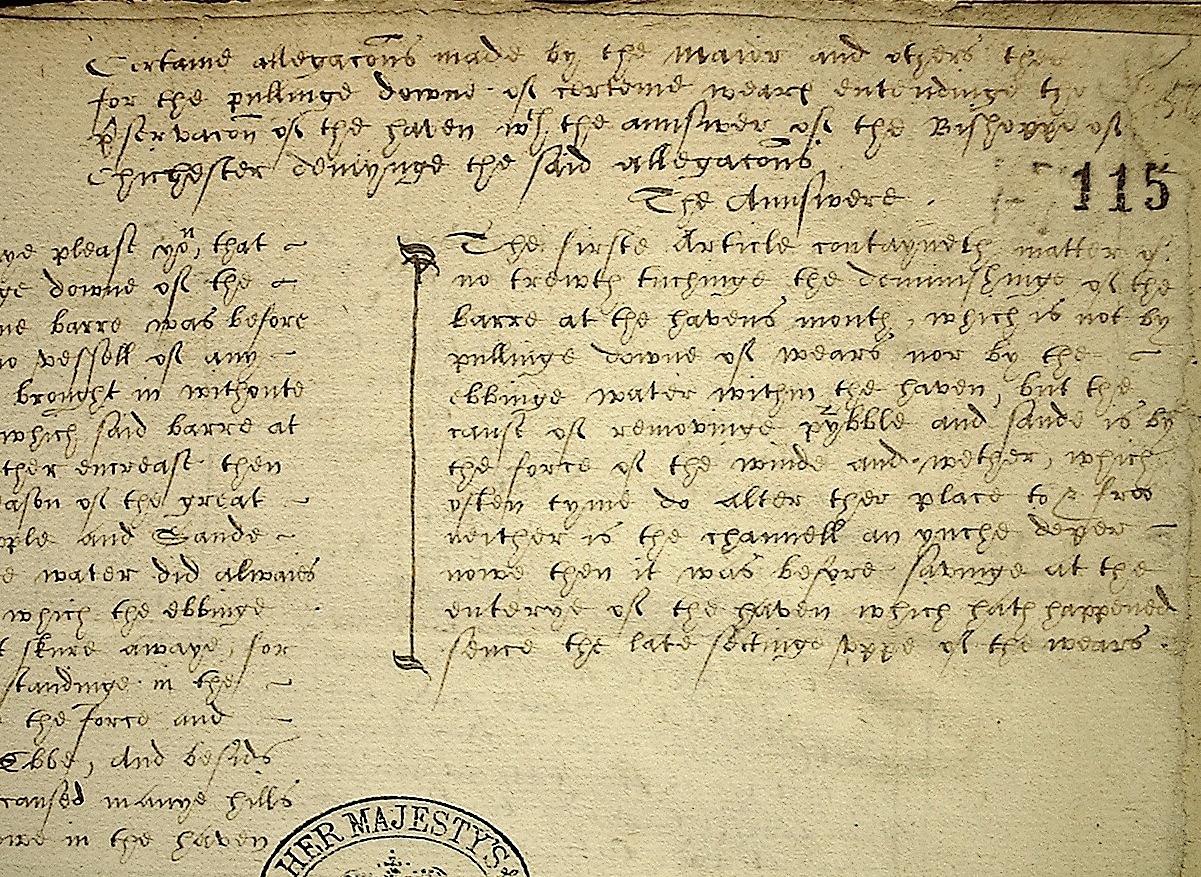 Certaine allegacons made by the maior and others ther
for the pullinge downe of certeine weares entendinge the
pservacon of the haven wth the annswer of the Bishoppe of
Chichester denyinge the said allegacons
115
The Annswere .
please yon, that
downe of the
barre was before
vessell of any
brought in withoute
which said barre at
encrease then
of the great
and Sande
water did alwaies
which the ebbinge
skure awaye, for
standinge in the
the force and
Ebbe, and besids
caused manye hills
in the haven
The firste Article contayneth matter of
no trewth tuchinge the deminishinge of the
barre at the havens mouth, which is not by
pullinge downe of wears nor by the
ebbinge water within the haven, but the
cause of removinge pybble and sande is by
the force of the winde and wether, which
often tyme do alter ther place to & froo
neither is the channell an ynche deper
nowe then it was before savinge at the
enterye of the haven which hath happened
sence the late settinge uppe of the wears .
HER MAJESTY'S